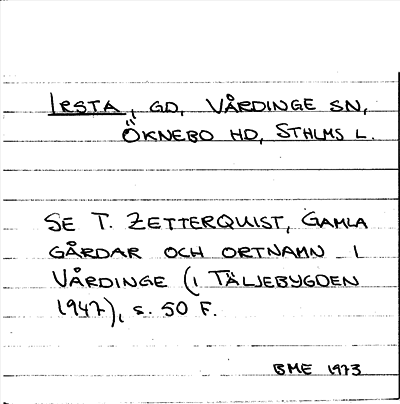 IRSTA, GD, VÅRDINGE SN,
ÖKNEBO HD, STHLMS L.
SE T. ZETTERQUIST, GAMLA
GÅRDAR OCH ORTNAMN I
VÅRDINGE (I TÄLJEBYGDEN
1947), S. 50 F.
BME 1973